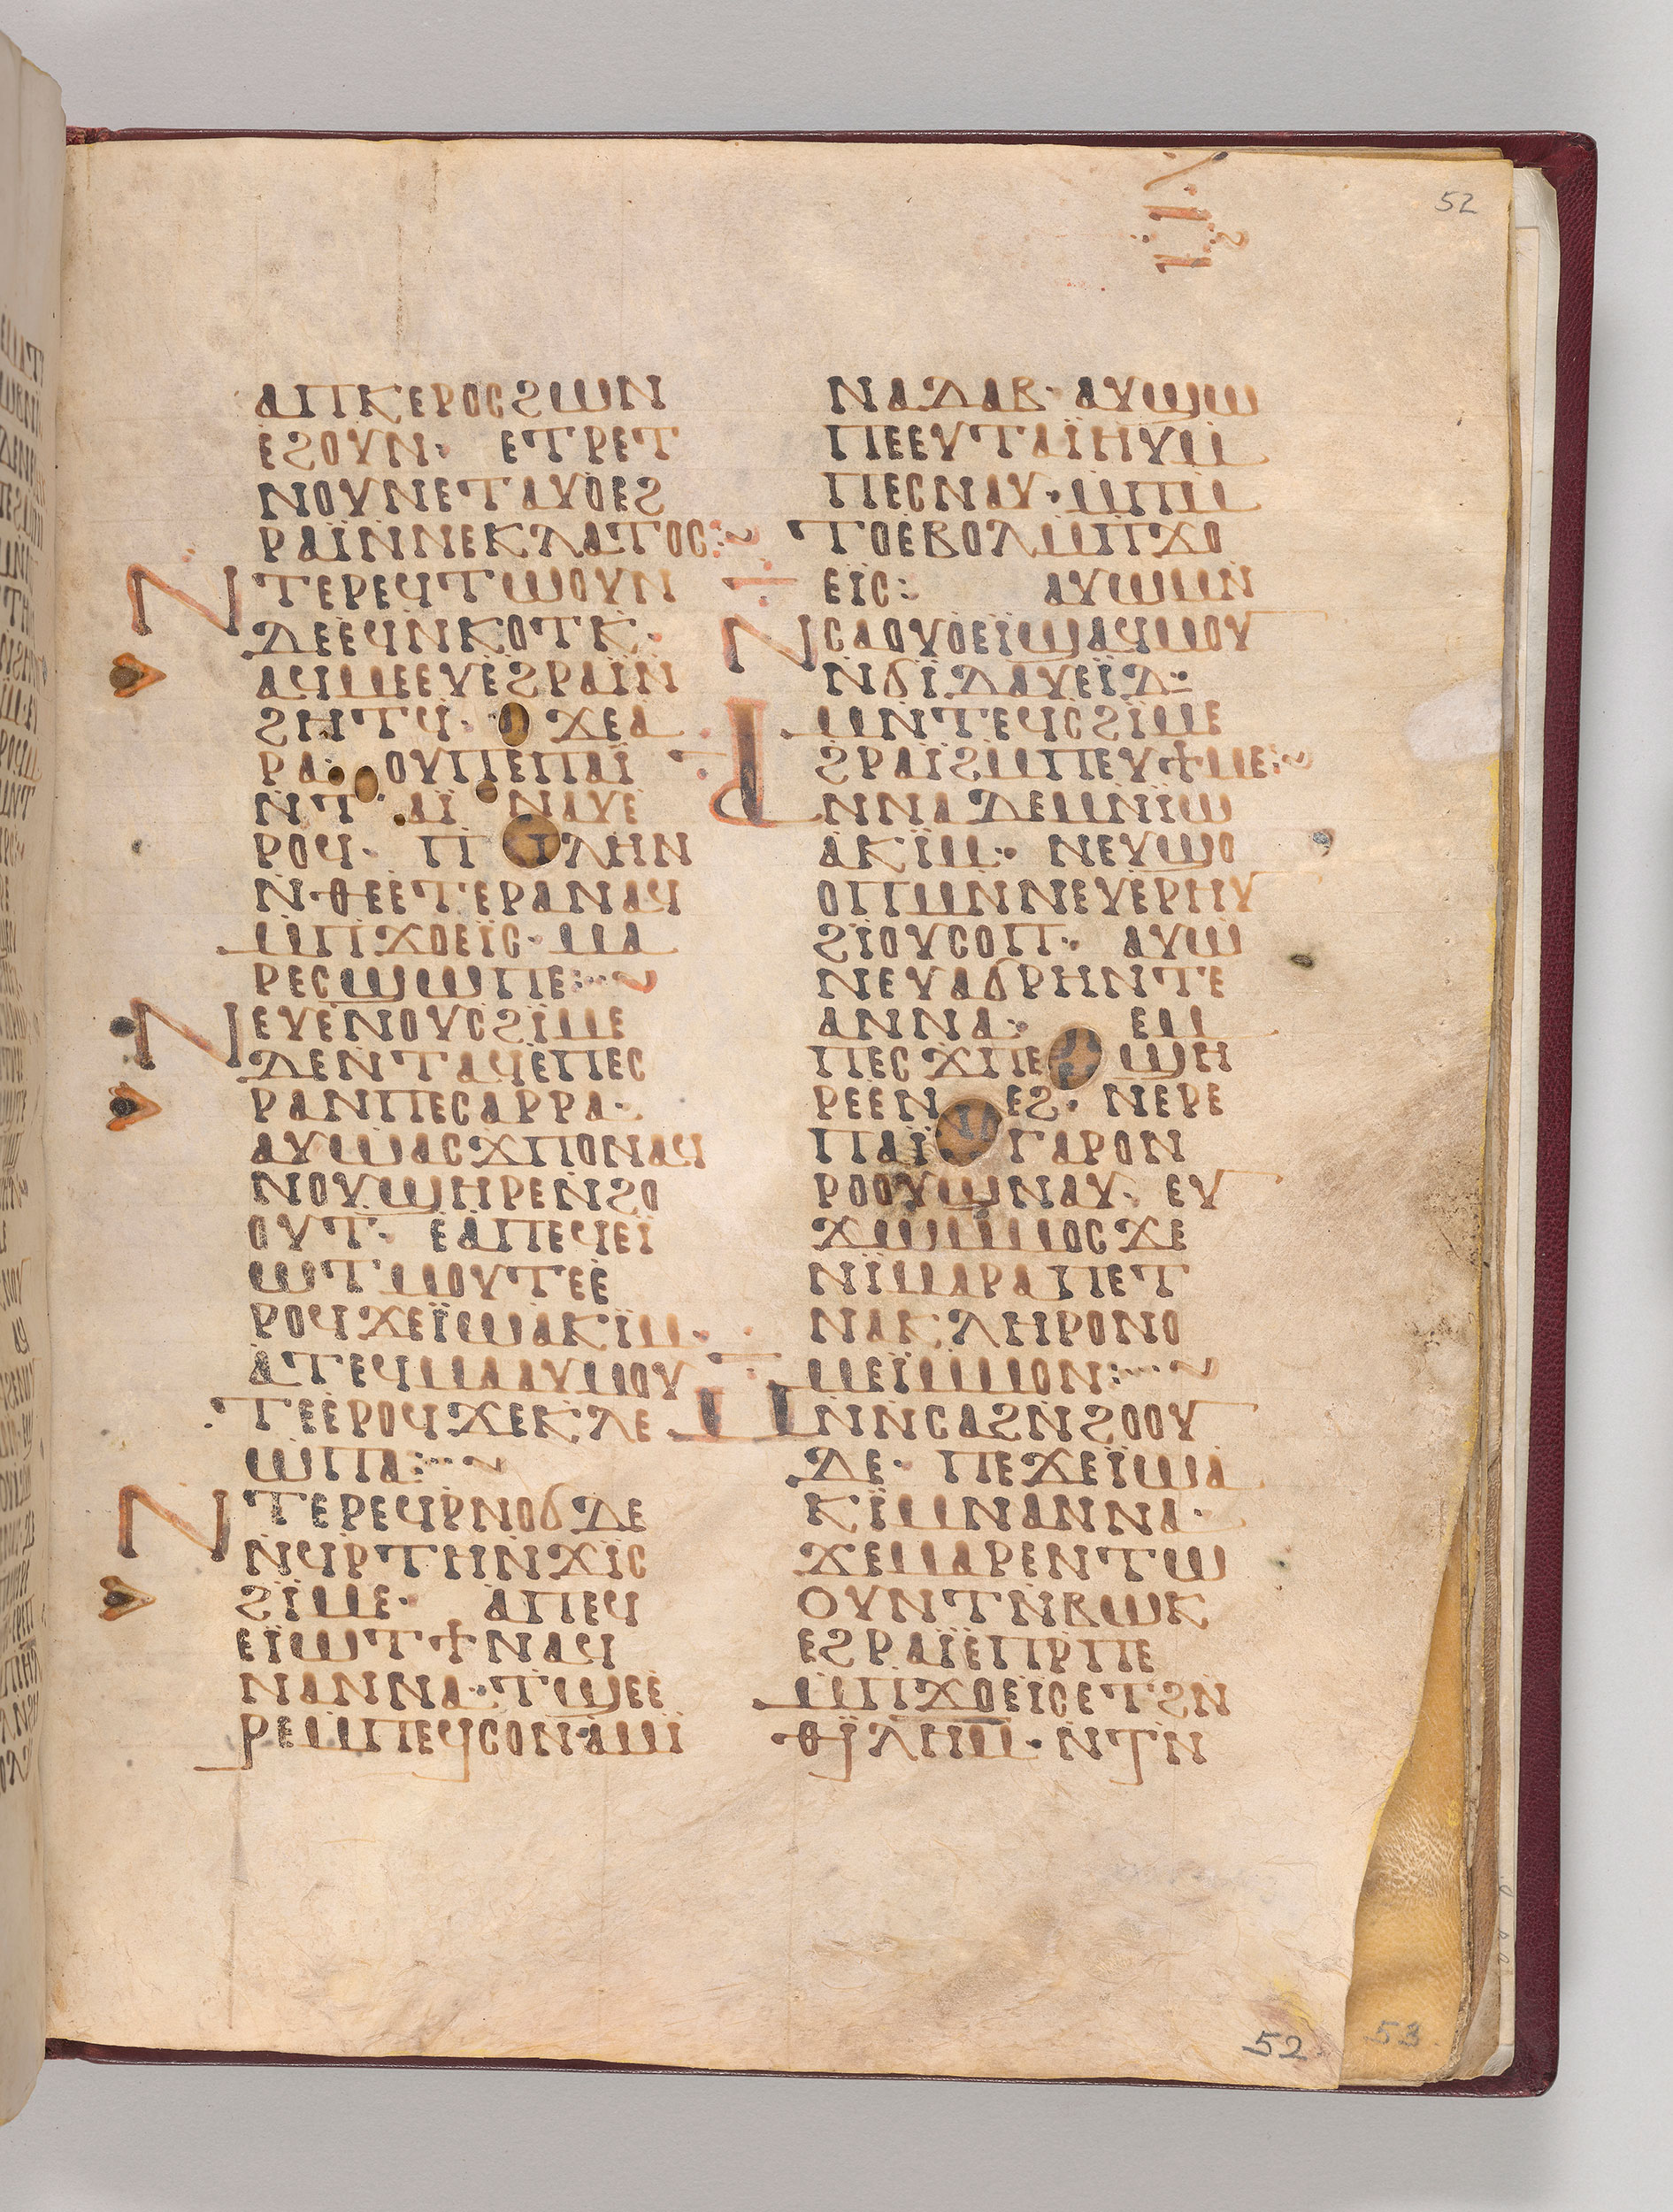 52
ⲁⲡⲕⲉⲣⲟⲥϩⲱⲛ
ⲉϩⲟⲩⲛ· ⲉⲧⲣⲉⲧ
ⲛⲟⲩⲛⲉⲧⲁⲩⲟⲉϩ
ⲣⲁⲓ̈ⲛ̇ⲛⲉⲕⲗⲁⲧⲟⲥ:
ⲛⲧⲉⲣⲉϥⲧⲱⲟⲩⲛ
ⲇⲉⲉϥⲛ̇ⲕⲟⲧⲕ̇·
ⲁϥⲙⲉⲉⲩⲉ̇ϩⲣⲁⲓ̈ⲛ̇
ϩⲏⲧϥ̇· ϫⲉⲁ
ⲣⲁ· ⲟⲩⲡⲉⲡⲁⲓ̈
ⲛ̇ⲧ ⲁⲓ̈ ⲛⲁⲩⲉ̇
ⲣⲟϥ· ⲡ ⲗⲏⲛ
ⲛ̇ⲑⲉⲉ̇ⲧⲉⲣⲁⲛⲁϥ
ⲙ̇ⲡϫⲟⲉⲓ̈ⲥ· ⲙⲁ
ⲣⲉⲥϣⲱⲡⲉ:
ⲛⲉⲩⲉ̇ⲛⲟⲩⲥϩⲓ̈ⲙⲉ
ⲇⲉⲛⲧⲁϥⲉ̇ⲡⲉⲥ
ⲣⲁⲛⲡⲉⲥⲁⲣⲣⲁ·
ⲁⲩⲱⲁⲥϫⲡⲟⲛⲁϥ
ⲛⲟⲩϣⲏⲣⲉⲛ̇ϩⲟ
ⲟⲩⲧ· ⲉ̇ⲁ̇ⲡⲉϥⲉⲓ̈
ⲱⲧⲙⲟⲩⲧⲉⲉ̇
ⲣⲟϥϫⲉⲓ̈ⲱⲁⲕⲓ̈ⲙ·
ⲁ̇ⲧⲉϥⲙⲁⲁⲩⲙⲟⲩ
ⲧⲉⲉ̇ⲣⲟϥϫⲉⲕⲗⲉ
ⲱⲡⲁ:
ⲛⲧⲉⲣⲉϥⲣ̇ⲛⲟϭⲇⲉ
ⲛ̇ϥⲣ̇ⲧⲏⲛ̇ϫⲓⲥ
ϩⲓ̈ⲙⲉ· ⲁ̇ⲡⲉϥ
ⲉⲓ̈ⲱⲧϯⲛⲁϥ
ⲛⲁⲛⲛⲁ·ⲧϣⲉⲉ
ⲣⲉⲙ̇ⲡⲉϥⲥⲟⲛ·ⲁⲙⲓ̈
ⲛⲁⲇⲁⲃ· ⲁⲩⲱϣⲱ
ⲡⲉⲉⲩⲧⲁⲓ̈ⲏⲩⲙ̇
ⲡⲉⲥⲛⲁⲩ·ⲙ̇ⲡⲙ̇
ⲧⲟⲉ̇ⲃⲟⲗⲙ̇ⲡϫⲟ
ⲉⲓ̈ⲥ: ⲁⲩⲱⲙⲛ̇
ⲛⲥⲁⲟⲩⲟⲉⲓ̈ϣⲁϥⲙⲟⲩ
ⲛ̇ϭⲓ̈ⲇⲁⲩⲉⲓ̈ⲇ:
ⲙⲛ̇ⲧⲉϥⲥϩⲓ̈ⲙⲉ
ϩⲣⲁⲓ̈ϩⲙ̇ⲡⲉⲩϯⲙⲉ:
ⲁⲛⲛⲁⲇⲉⲙⲛ̇ⲓ̈ⲱ
ⲁⲕⲓ̈ⲙ· ⲛⲉⲩϣⲟ
ⲟⲡⲙⲛ̇ⲛⲉⲩⲉ̇ⲣⲏⲩ
ϩⲓ̈ⲟⲩⲥⲟⲡ· ⲁⲩⲱ
ⲛⲉⲩⲁϭⲣⲏⲛⲧⲉ
ⲁⲛⲛⲁ· ⲉⲙ̇
ⲡⲉⲥϫⲡⲉ ϣⲏ
ⲣⲉⲉⲛ ⲉϩ· ⲛⲉⲣⲉ
ⲡⲁⲓ̈ ⲅⲁⲣⲟⲛ
ⲣⲟⲟⲩϣⲛⲁⲩ· ⲉⲩ
ϫⲱⲙ̇ⲙⲟⲥϫⲉ
ⲛⲓ̈ⲙⲁⲣⲁⲡⲉⲧ
ⲛⲁⲕⲗⲏⲣⲟⲛⲟ
ⲙⲉⲓ̈ⲙ̇ⲙⲟⲛ:
ⲙⲛⲛ̇ⲥⲁϩⲛ̇ϩⲟⲟⲩ
ⲇⲉ· ⲡⲉϫⲉⲓ̈ⲱⲁ
ⲕⲓ̈ⲙⲛ̇ⲁⲛⲛⲁ·
ϫⲉⲙⲁⲣⲉⲛⲧⲱ
ⲟⲩⲛⲧⲛ̇ⲃⲱⲕ
ⲉϩⲣⲁⲓ̈ⲉ̇ⲡⲣ̇ⲡⲉ
ⲙ̇ⲡϫⲟⲉⲓⲥⲉⲧϩⲛ̇
ⲑⲓ̈ⲗⲏⲙ·ⲛ̇ⲧⲛ̇
52
53